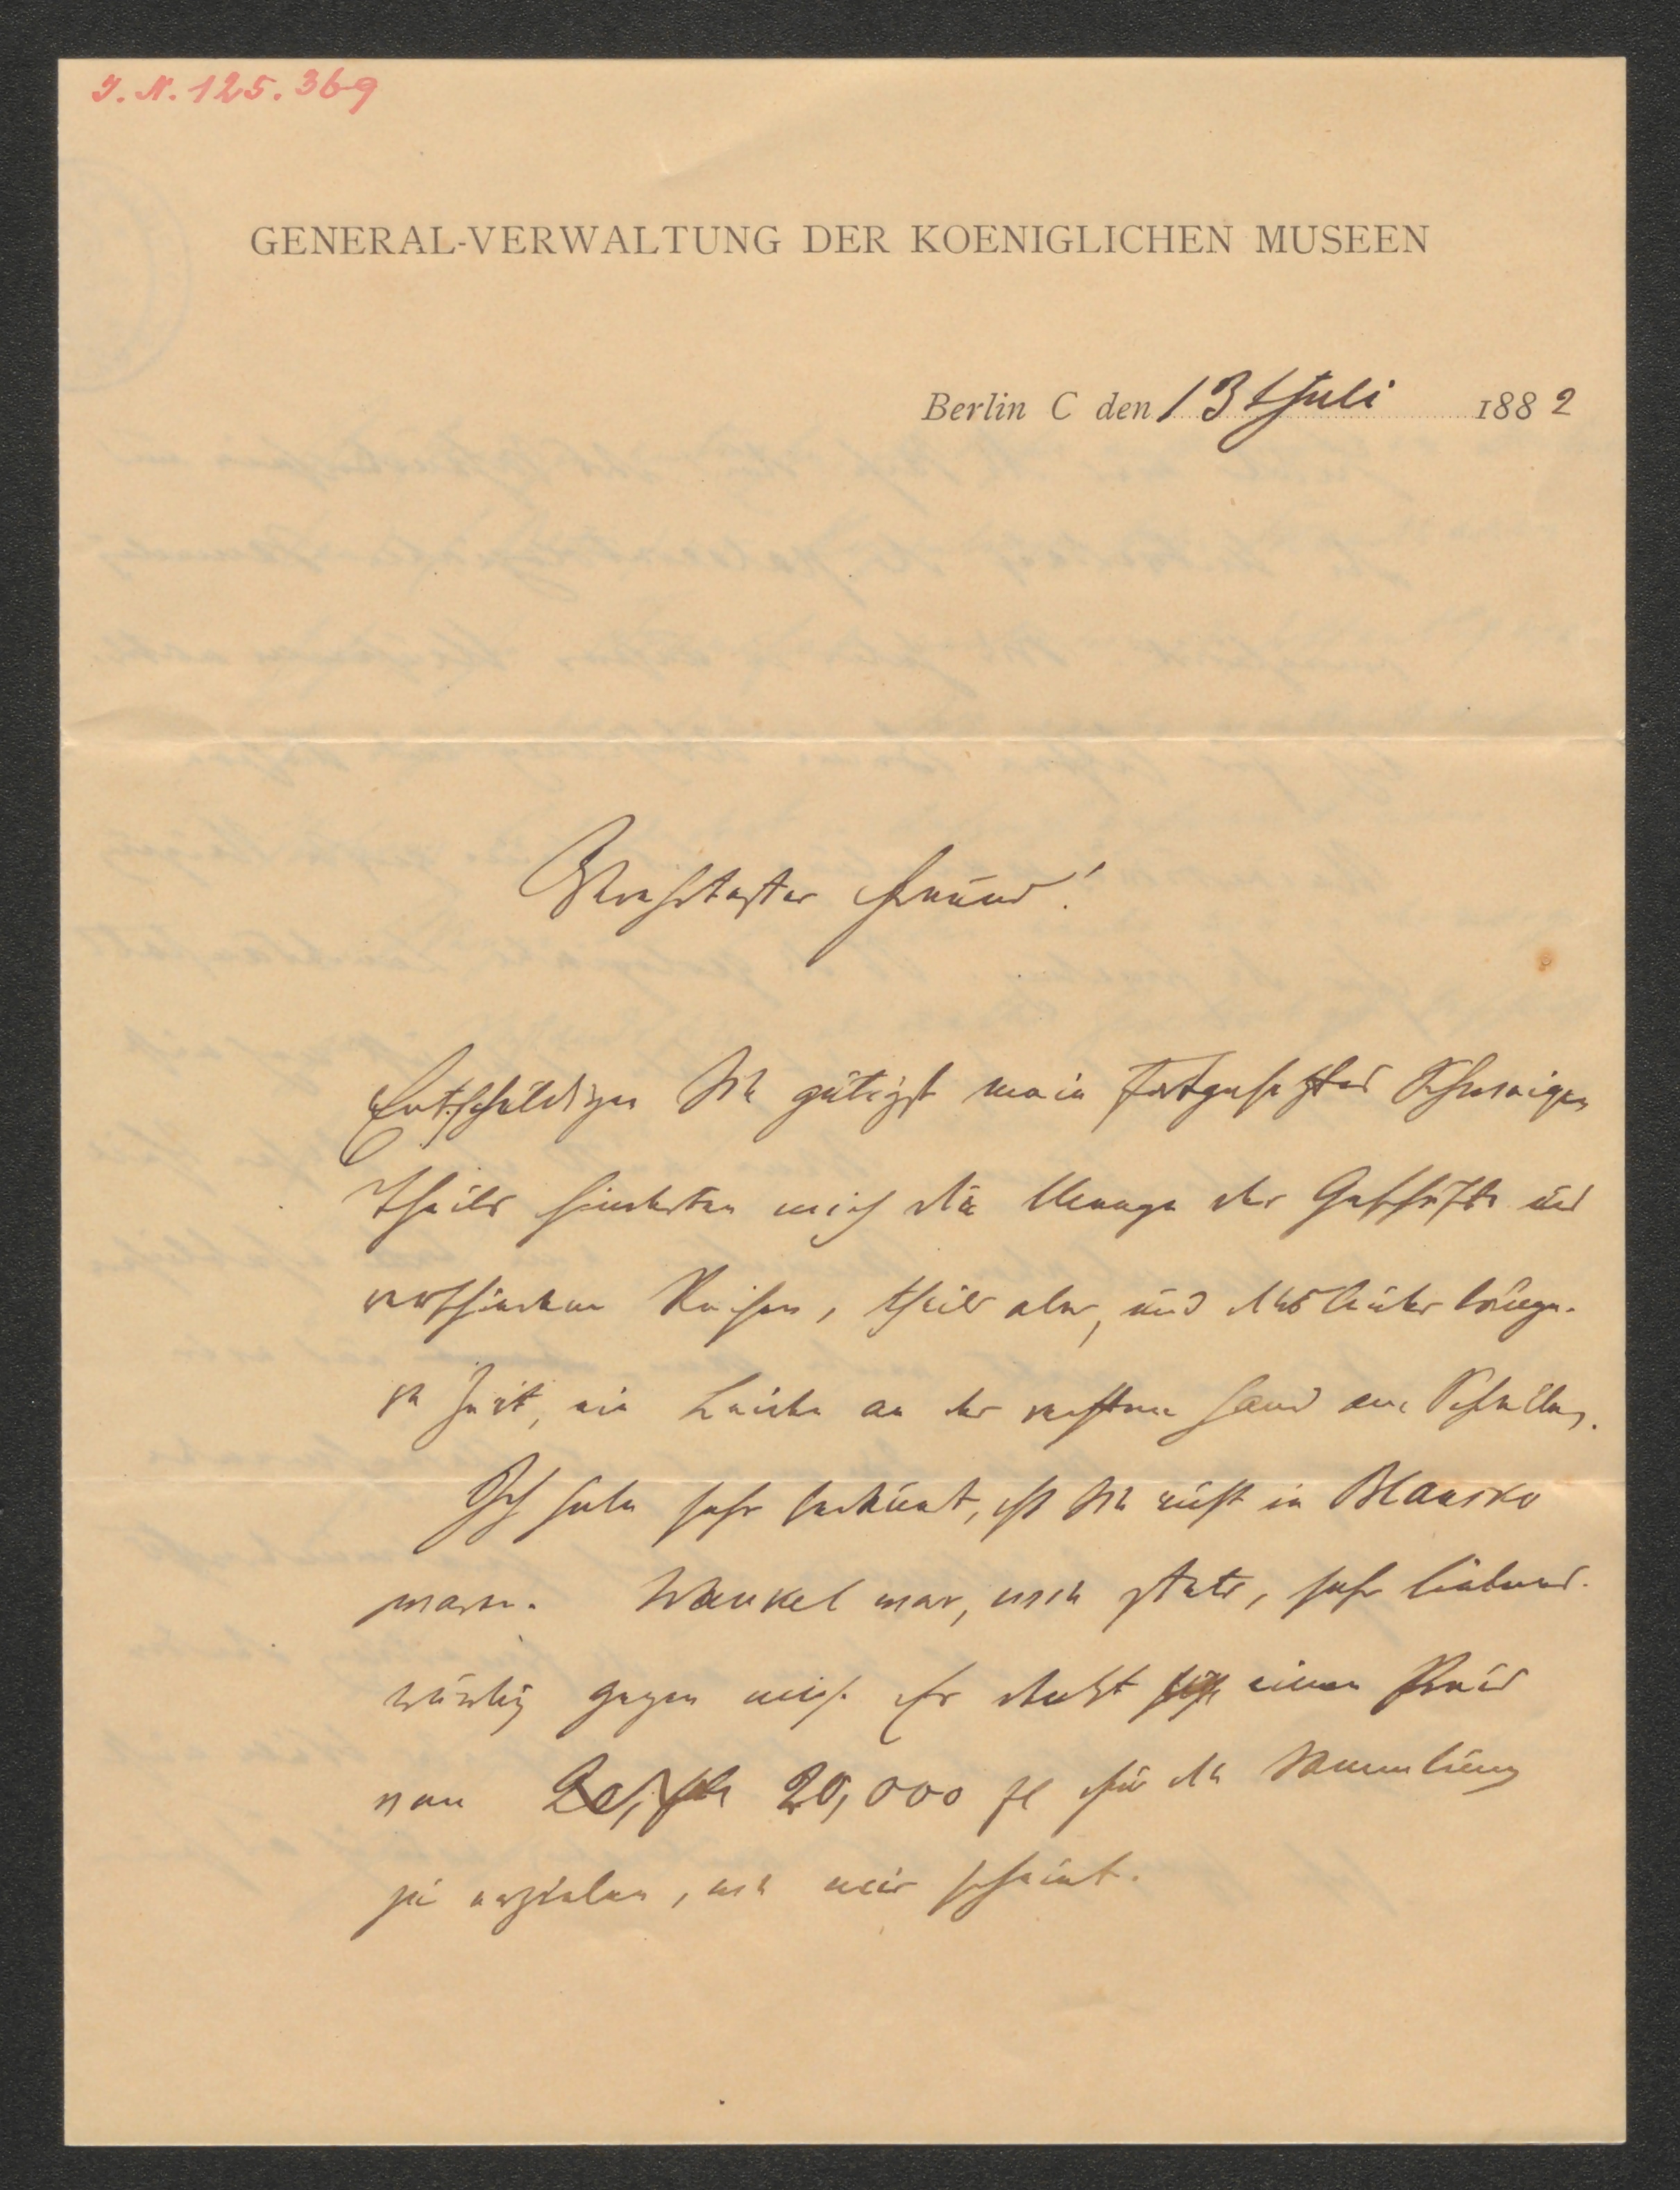 I. N. 125.369
GENERAL-VERWALTUNG DER KOENIGLICHEN MUSEEN
Berlin C den 13 Juli 1882
Verehrtester Freund!
Entschuldigen Sie gütigst mein fortgesetztes Schweigen
Theils hinderten mich die Menge der Geschäfte und
verschiedene Reisen, theils aber, und das leider länge-
re Zeit, ein Leiden an der rechten Hand am Schreiben.
Ich habe sehr bedauert, daß Sie nicht in Blansko
waren. Wankel war, wie stets, sehr liebens-
würdig gegen mich. Er denkt einen Preis
von 20,000 fl für die Sammlung
zu erzielen, wie mir scheint.